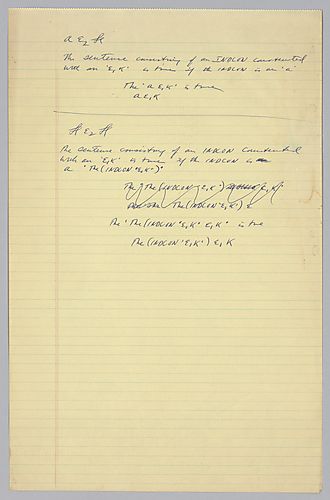 a ε₂ K
The sentence consisting of an INDCON concatenated
with an 'ε₁K' is true if the INDCON is an 'a'
The 'a ε₁K' is true
a ε₁K
K ε₂ K
The sentence consisting of an INDCON concatenated
with an 'ε₁K' is true if the INDCON is
a 'The (INDCON 'ε₁K')'
The The (INDCON 'ε₁K') ε₁K'
The (INDCON 'ε₁K') ε
The 'The (INDCON 'ε₁K' ε₁K' is true
The (INDCON 'ε₁K') ε₁K